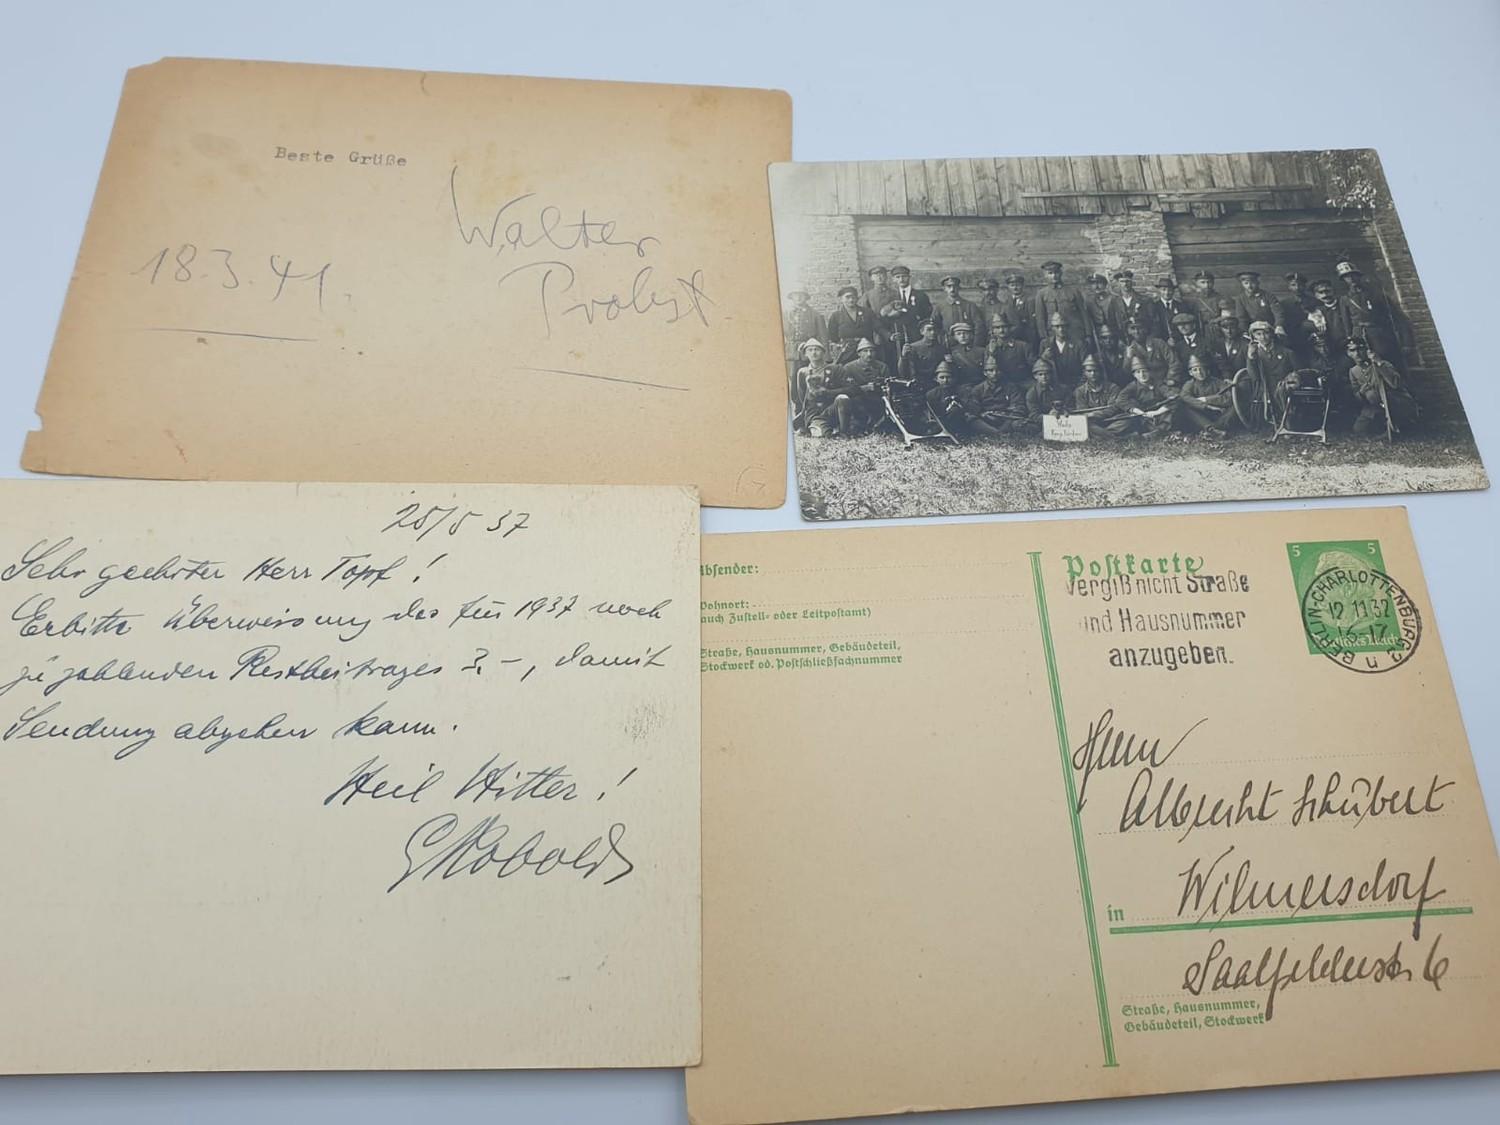 Beste Grüße
18.3.41.
Walter
Probst
25/5 37
Sehr geehrter Herr Topf!
Erbitte Überweisung des für 1937 noch
zu zahlenden Restbeitrages 3.–, damit
Sendung abgehen kann.
Heil Hitler!
Absender:
Wohnort:
(auch Zustell- oder Leitpostamt)
Straße, Hausnummer, Gebäudeteil,
Stockwerk od. Postschließfachnummer
Postkarte
Vergiß nicht Straße
und Hausnummer
anzugeben.
5 5
Deutsches Reich
BERLIN-CHARLOTTENBURG 2
n
Herrn
Albrecht Schubert
in Wilmersdorf
Saalfelderstr. 6
Straße, Hausnummer,
Gebäudeteil, Stockwerk